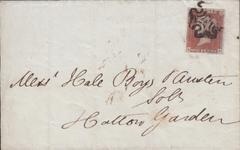 Mess^rs Hale Boys & Austen
Sol^rs
Hatton Garden